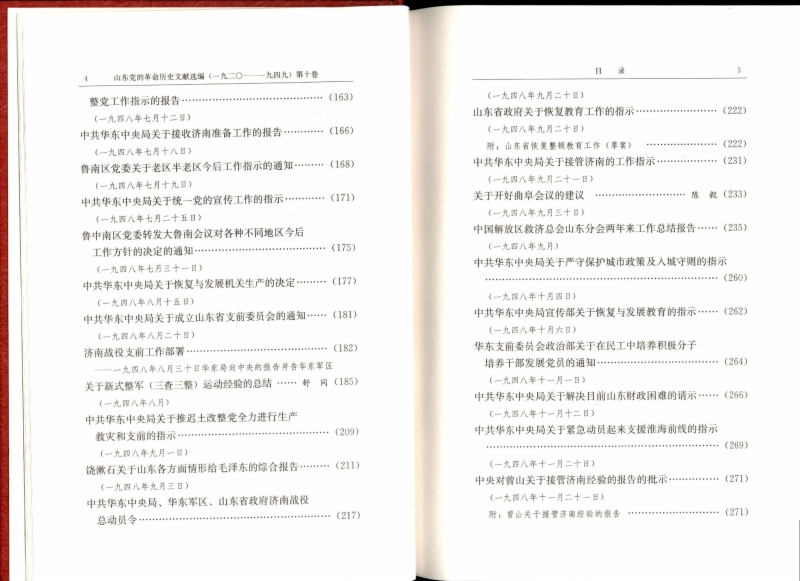 4 山东党的革命历史文献选编（一九二〇——一九四九）第十卷
整党工作指示的报告……………………………………(163)
（一九四八年七月十二日）
中共华东中央局关于接收济南准备工作的报告…………(166)
（一九四八年七月十八日）
鲁南区党委关于老区半老区今后工作指示的通知………(168)
（一九四八年七月十九日）
中共华东中央局关于统一党的宣传工作的指示…………(171)
（一九四八年七月二十五日）
鲁中南区党委转发大鲁南会议对各种不同地区今后
工作方针的决定的通知…………………………………(175)
（一九四八年七月三十一日）
中共华东中央局关于恢复与发展机关生产的决定………(177)
（一九四八年八月十五日）
中共华东中央局关于成立山东省支前委员会的通知……(181)
（一九四八年八月二十日）
济南战役支前工作部署……………………………………(182)
——一九四八年八月三十日华东局向中央的报告并告华东军区
关于新式整军（三查三整）运动经验的总结……舒 同(185)
（一九四八年八月）
中共华东中央局关于推迟土改整党全力进行生产
救灾和支前的指示………………………………………(209)
（一九四八年九月一日）
饶漱石关于山东各方面情形给毛泽东的综合报告………(211)
（一九四八年九月三日）
中共华东中央局、华东军区、山东省政府济南战役
总动员令…………………………………………………(217)
目 录 5
（一九四八年九月二十日）
山东省政府关于恢复教育工作的指示……………………(222)
（一九四八年九月二十日）
附：山东省恢复整顿教育工作（草案）…………………(222)
中共华东中央局关于接管济南的工作指示………………(231)
（一九四八年九月二十一日）
关于开好曲阜会议的建议……………………陈 毅(233)
（一九四八年九月三十日）
中国解放区救济总会山东分会两年来工作总结报告……(235)
（一九四八年九月）
中共华东中央局关于严守保护城市政策及入城守则的指示
……………………………………………………………(260)
（一九四八年十月四日）
中共华东中央局宣传部关于恢复与发展教育的指示……(262)
（一九四八年十月六日）
华东支前委员会政治部关于在民工中培养积极分子
培养干部发展党员的通知………………………………(264)
（一九四八年十一月一日）
中共华东中央局关于解决目前山东财政困难的请示……(266)
（一九四八年十一月十二日）
中共华东中央局关于紧急动员起来支援淮海前线的指示
……………………………………………………………(269)
（一九四八年十一月二十日）
中央对曾山关于接管济南经验的报告的批示……………(271)
（一九四八年十一月二十一日）
附：曾山关于接管济南经验的报告………………………(271)